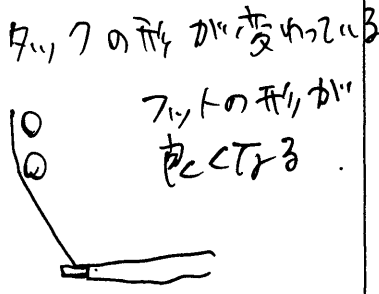 タックの形が変わっている
フットの形が
良くなる.